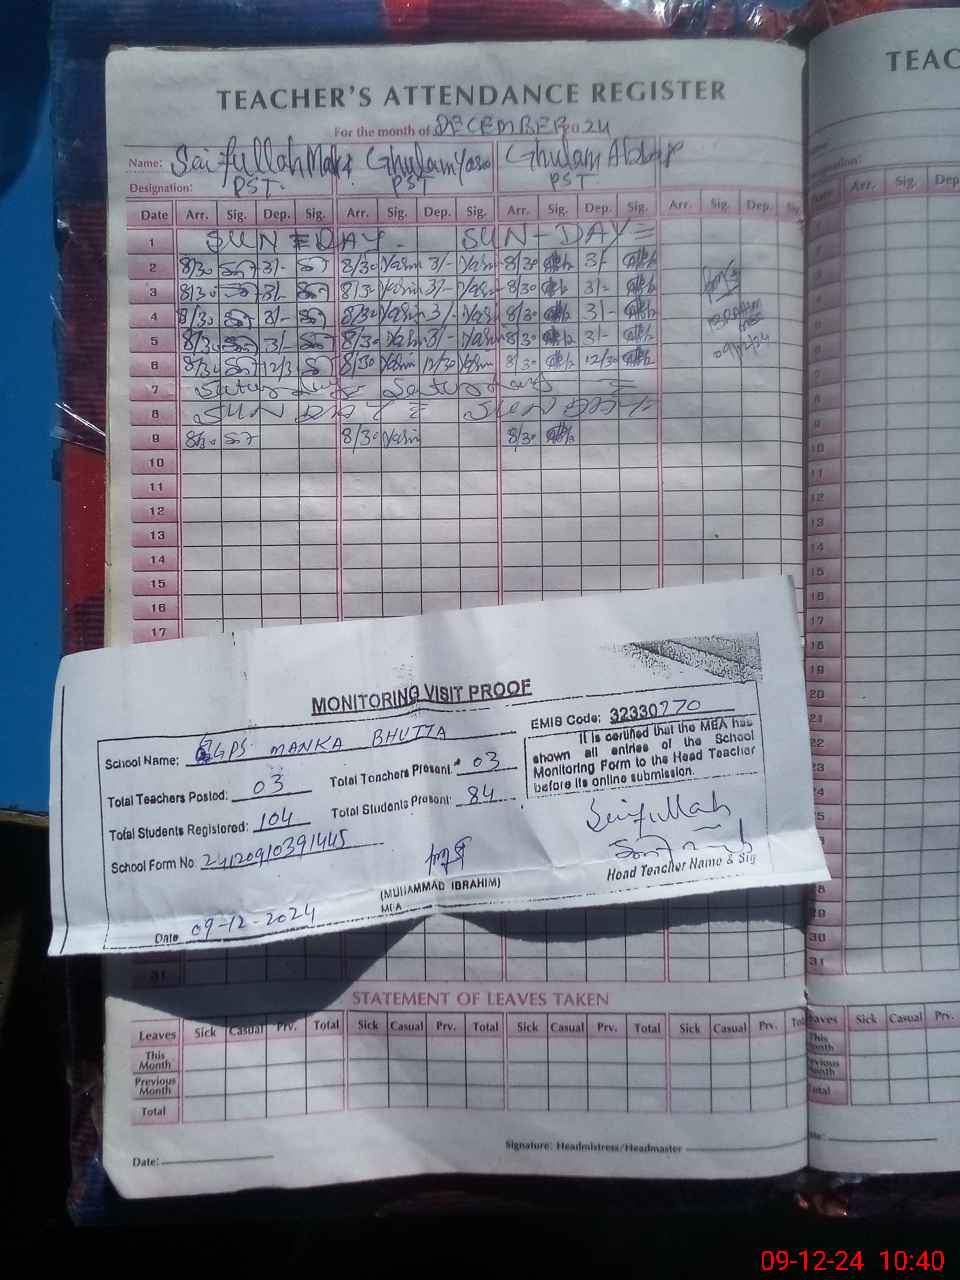 TEACHER'S ATTENDANCE REGISTER
For the month of DECEMBER 2024
Name: Saifullah Ghulam Yasin Ghulam Abbas
Designation: PST PST PST
Date Arr. Sig. Dep. Sig. Arr. Sig. Dep. Sig. Arr. Sig. Dep. Sig. Arr. Sig. Dep. Sig.
1 SUN = DAY SUN - DAY =
2 8/30 3/- 8/30 Yasin 3/- Yasin 8/30 3/-
3 8/30 3/- 8/30 Yasin 3/- Yasin 8/30 3/-
4 8/30 3/- 8/30 Yasin 3/- Yasin 8/30 3/-
IBRAHIM
MEA
5 8/30 3/- 8/30 Yasin 3/- Yasin 8/30 3/-
09/12/24
6 8/30 12/30 8/30 Yasin 12/30 Yasin 8/30 12/30
7 Saturday = Saturday =
8 SUN DAY = SUN DAY =
9 8/30 8/30 Yasin 8/30
10
11
12
13
14
15
16
17
MONITORING VISIT PROOF
School Name: GPS MANKA BHUTTA
EMIS Code: 32330770
It is certified that the MEA has
shown all entries of the School
Monitoring Form to the Head Teacher
before its online submission.
Total Teachers Posted: 03 Total Teachers Present: 03
Total Students Registered: 104 Total Students Present: 84
School Form No. 24120910391445
Saifullah
Head Teacher Name & Sig
(MUHAMMAD IBRAHIM)
MEA
Date 09-12-2024
31
STATEMENT OF LEAVES TAKEN
Leaves Sick Casual Prv. Total Sick Casual Prv. Total Sick Casual Prv. Total Sick Casual Prv. Total
This Month
Previous Month
Total
Signature: Headmistress/Headmaster
Date:
TEAC
Date Arr. Sig. Dep
10
11
12
13
14
15
16
17
18
19
20
21
22
23
24
25
28
29
30
31
Leaves Sick Casual Prv.
This Month
Previous Month
Total
09-12-24 10:40